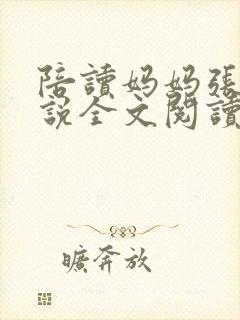 陪讀妈妈張
說全文閱讀
曠奔放